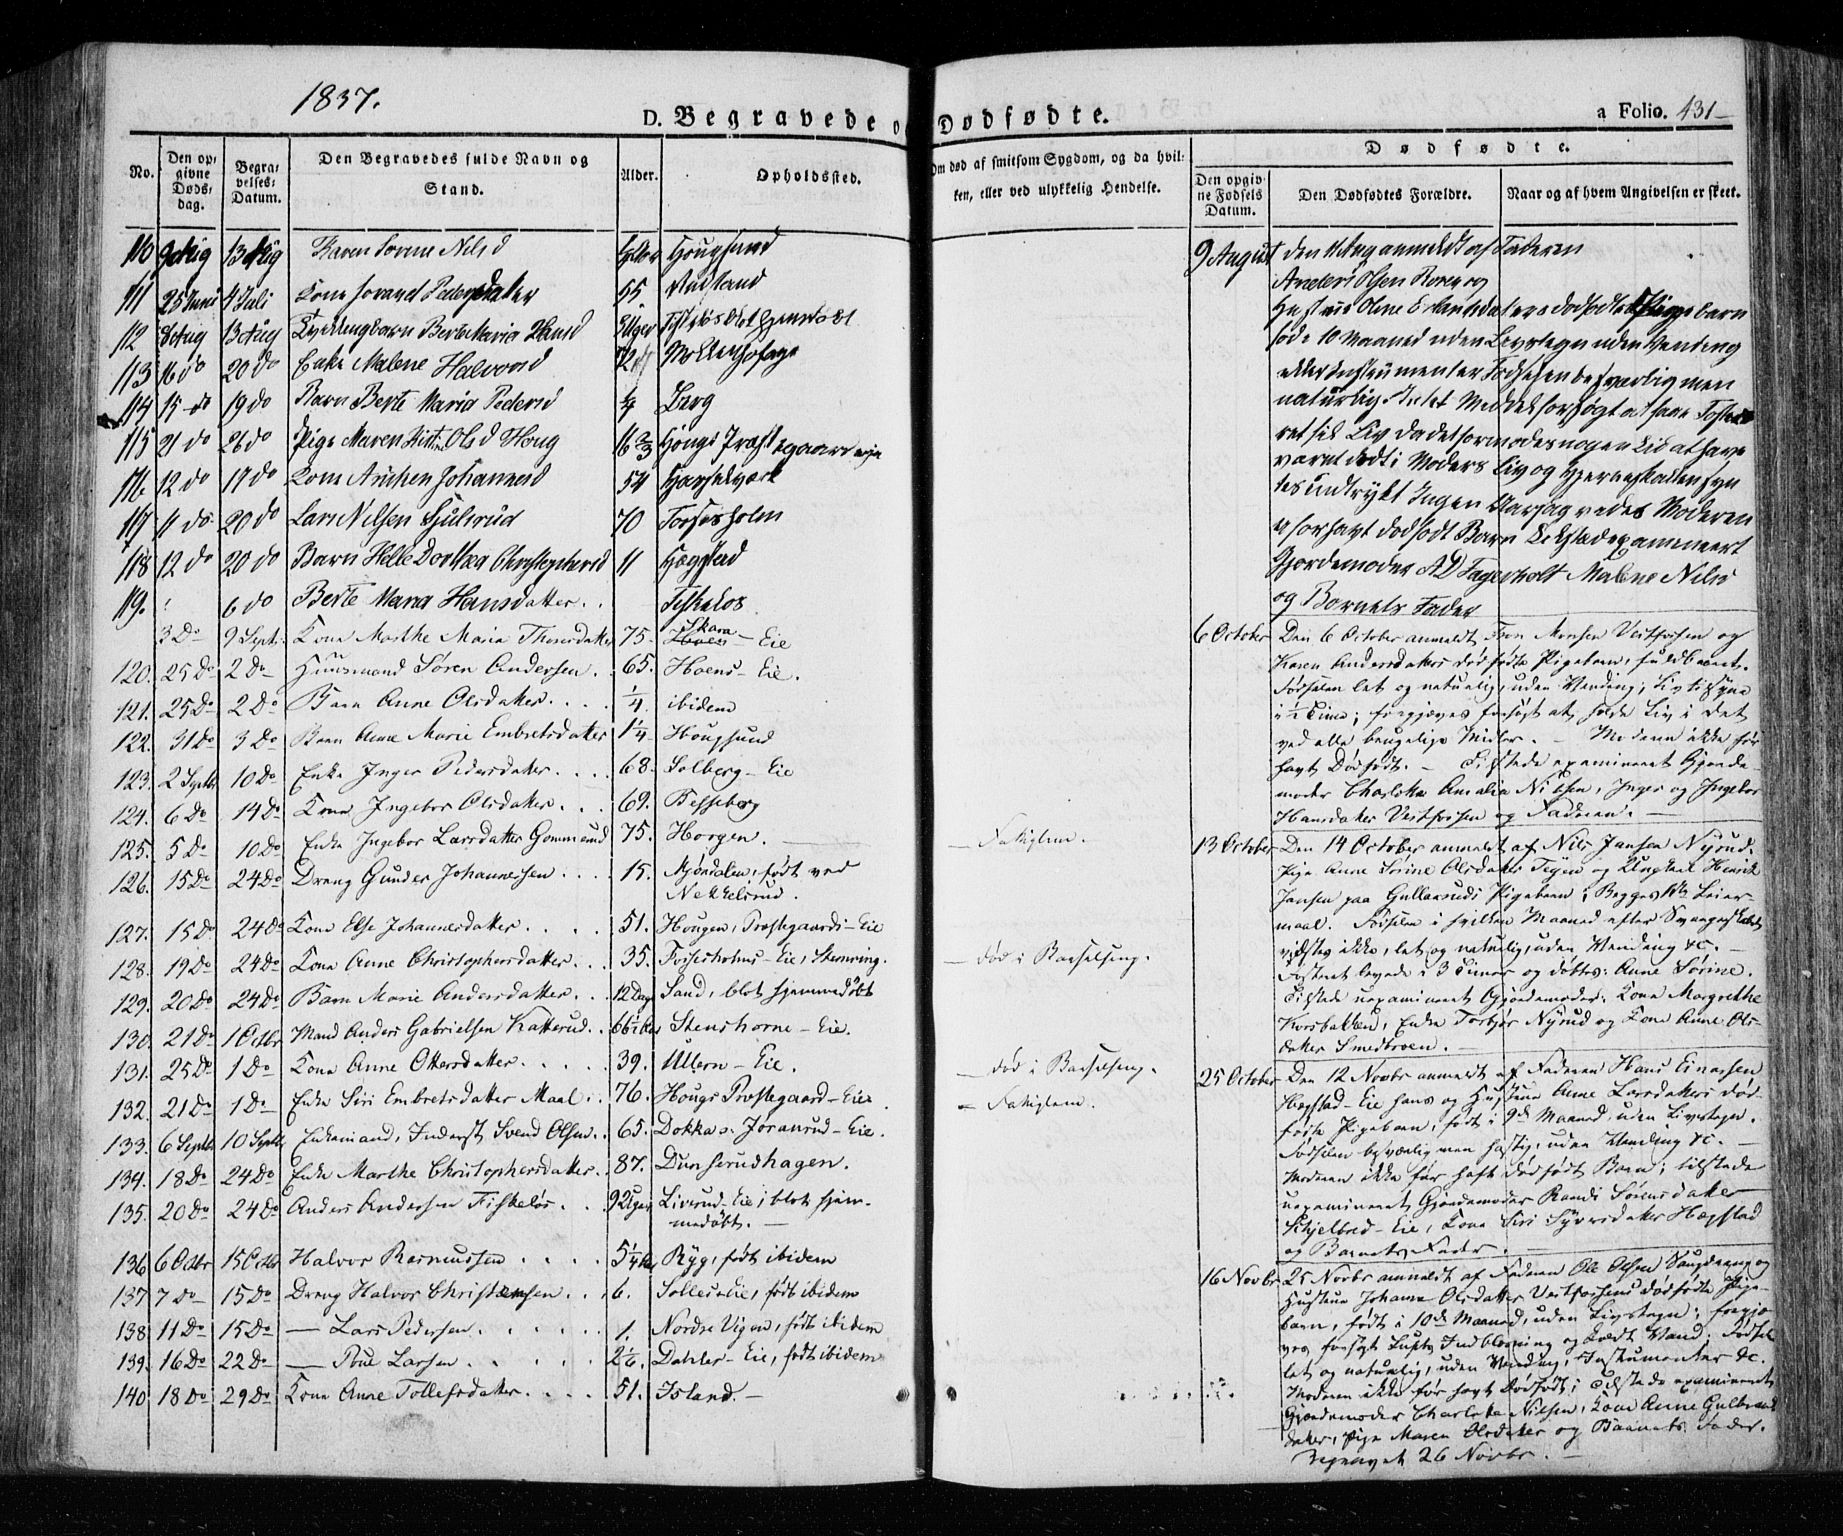 1837.
D. Begravede o Dødfødte.
a Folio. 431
No.
Den op=
givne
Døds=
dag.
Begra=
velses=
Datum.
Den Begravedes fulde Navn og
Stand.
Alder.
Opholdssted.
Om død af smitsom Sygdom, og da hvil=
ken, eller ved ulykkelig Hendelse.
Dødfødte.
Den opgiv=
ne Fødsels
Datum.
Den Dødfødtes Forældre.
Naar og af hvem Angivelsen er skeet.
110 9 Aug 13 Aug Karen Nilsd Hougsund
111 25 Juni 4 Juli Kone Pedersdatter 55.
112 8 Aug 13 Aug Tvillingbarn Berte Maria Hansd
113 16 do 20 do Enke Malene Halvorsd
114 15 do 19 do Barn Berte Maria Pedersd 1/4 Berg
115 21 do 26 do Pige Maren Olsd Houg 16 2/3 Hougs Præstegaard eje
116 12 do 17 do Kone Anichen Johannesd 54
117 11 do 20 do Lars Nilsen 70 Fossesholm
118 12 do 20 do Barn Helle Dorthea Christophersd 11 Hægstad
119. 6 do Berte Maria Hansdatter . . Fiskeløs
3 Do 9 Septr Kone Marthe Maria Thorersdatter 75. Skara Hoens – Eie
120. 25 Do 2 Do Huusmand Søren Andersen . 65. Hoens – Eie.
121. 25 Do 2 Do Barn Anne Olsdatter . . . . 1/4. ibidem
122. 31 Do 3 Do Barn Anne Marie Embretsdatter 1 1/4. Hougsund
123. 2 Septbr 10 Do Enke Inger Pedersdatter . . . . 68. Solberg – Eie
124. 6 Do 14 Do Kone Ingebor Olsdatter . . . 69. Besseberg
125. 5 Do 10 Do Enke Ingebor Larsdatter Gommerud 75. Horgen. — Fattiglem.
126. 15 Do 24 Do Dreng Gunder Johannesen . . . . 15. Mjøndalen, født ved
Nekkelsrud.
127. 15 Do 24 Do Kone Else Johannesdatter . . . . 51. Hougen, Præstegaards – Eie
128. 19 Do 24 Do Kone Anne Christophersdatter . . . 35. Fossesholms – Eie, Stenring. — død i Barselseng.
129. 20 Do 24 Do Barn Marie Andersdatter . . . 12 Dage Sand, blot hjemmedøbt
130. 21 Do 1 Octbr Mand Anders Gabrielsen Katterud . . 66 1/2 Stenshorne – Eie.
131. 25 Do 1 Do Kone Anne Ottersdatter . . . . . 39. Ullern – Eie. — død i Barselseng.
132. 21 Do 1 Do Enke Siri Embretsdatter Moal . 76. Hougs Præstegaard – Eie. – Fattiglem.
133. 6 Septbr 10 Septbr Enkemand, Inderst Svend Olsen . . 65. Dokka o: Joransrud – Eie.
134. 18 Do 24 Do Enke Marthe Christophersdatter . . 87. Dunserudhagen.
135. 20 Do 24 Do Anders Andersen Fiskeløs . . . 9 Uger Liverud – Eie, blot hjem=
medøbt. —
136 6 Octbr 15 Octbr Halvor Rasmussen . . . . . 5 1/4 Ryg, født ibidem
137 7 Do 15 Do Dreng Halvor Christensen . . . 6. født ibidem
138 11 Do 15 Do — Lars Pedersen . . . . . . 1. Nordre Vigen, født ibidem
139. 16 Do 22 Do — Poul Larsen . . . . . 2 1/6. Dahler – Eie, født ibidem
140 18 Do 29 Do Kone Anne Tollefsdatter . . . . 51. Island. —
9 August den 11 Aug anmeldt af Faderen
Anders Olsen og
Hustrues Oline dødfødte Pigebarn
fød i 10 Maaned uden Livstegn uden Vending
eller Instrumenter Fødselen besværlig men
naturlig. Intet Middel forsøgt at faae
ret til Liv da det formodes nogen tid at have
været dødt i Moders Liv og Hjerneskallen syn
tes indtrykt Ingen Aarsag vedes Moderen
ej for havt dødfødt Barn Tilstæde examineert
Gjordemoder AD Fagerholt Malene Nilsd
og Barnets Fader
6 October Den 6 October anmeldt Vestfossen og
Karen Andersdatters dødfødte Pigebarn, fuldbaaret.
Fødselen let og naturlig, uden Vending; Liv tilsyne
i 1/2 Time; forgjæves forsøgt at holde Liv i det
ved alle brugelige Midler. — Moderen ikke før
havt Dødfødt. — Tilstede examineret Gjorde=
moder Charlotte Amalia Nilsen, Inger og Ingebor
Hansdatter Vestfossen og Faderen. —
13 October Den 14 October anmeldt af Nils Jansen Nyrud,
Pige Anne Sørine Olsdatter og Ungkarl Henrik
Jansen paa Gullerud's Pigebarn, Begges 1ste Leier=
maal. Fødselen i hvilken Maaned efter Svangerskabet
vidstes ikke, let og naturlig, uden Vending &c. —
Fosteret levede i 3 Timer og døbtes: Anne Sørine.
Tilstede uexamineret Gjordemoder: Kone Margrethe
Korsbakken, Enke Torbjør Nyrud og Kone Anne Ols=
datter Smedbroen. —
25 October Den 12 Novbr anmeldt af Faderen Hans Einersen
Hægstad – Eie hans og Hustrue Anne Larsdatters død=
fødte Pigebarn, født i 9de Maaned, uden Livstegn.
Fødselen besværlig men hastig, uden Vending &c. —
Moderen ikke før haft dødfødt Barn; tilstede
uexamineret Gjordemoder Randi Sørensdatter
Skjelbred – Eie, Kone Siri Syversdatter Hægstad
og Barnets Fader. —
16 Novbr 25 Novbr anmeldt af Faderen Ole Olsen og
Hustrue Johanne Olsdatter Vestfossens dødfødte Pige=
barn, født i 10de Maaned, uden Livstegn; forgjæ=
ves forsøgt Lufts Indblæsning og Koldt Vand. Fødsel
let og naturlig, uden Vending, Instrumenter &c.
Moderen ikke før havt Dødfødt; Tilstede examineret
Gjordemoder Charlotte Nilsen, Kone Anne Gulbrands=
datter, Pige Maren Olsdatter og Barnets Fader.
Begravet 26 Novbr. —